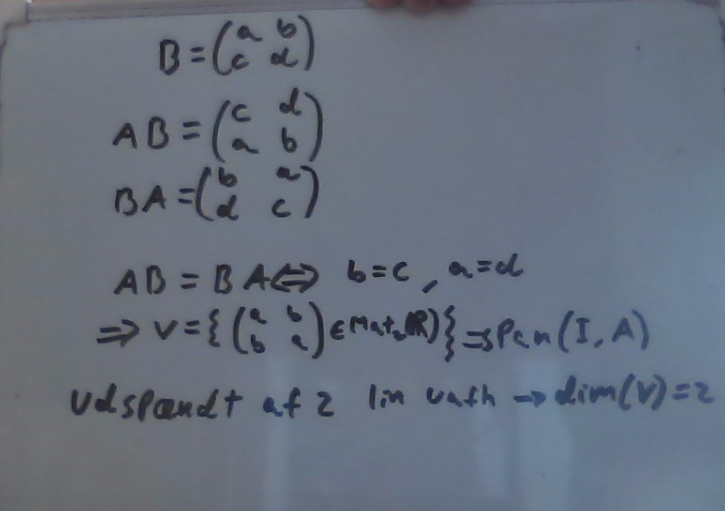 B = (a b
c d)
AB = (c d
a b)
BA = (b a
d c)
AB = BA ⇔ b = c, a = d
⇒ V = { (a b
b a) ∈ Mat₂(ℝ) } = span(I, A)
Udspændt af 2 lin uafh → dim(V) = 2